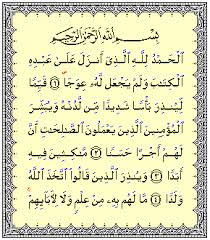 بِسْمِ ٱللَّهِ ٱلرَّحْمَٰنِ ٱلرَّحِيمِ
ٱلْحَمْدُ لِلَّهِ ٱلَّذِىٓ أَنزَلَ عَلَىٰ عَبْدِهِ
ٱلْكِتَٰبَ وَلَمْ يَجْعَل لَّهُۥ عِوَجَا ۜ ﴿١﴾ قَيِّمًا
لِّيُنذِرَ بَأْسًا شَدِيدًا مِّن لَّدُنْهُ وَيُبَشِّرَ
ٱلْمُؤْمِنِينَ ٱلَّذِينَ يَعْمَلُونَ ٱلصَّٰلِحَٰتِ أَنَّ
لَهُمْ أَجْرًا حَسَنًا ﴿٢﴾ مَّٰكِثِينَ فِيهِ
أَبَدًا ﴿٣﴾ وَيُنذِرَ ٱلَّذِينَ قَالُوا۟ ٱتَّخَذَ ٱللَّهُ
وَلَدًا ﴿٤﴾ مَّا لَهُم بِهِۦ مِنْ عِلْمٍ وَلَا لِـَٔابَآئِهِمْ